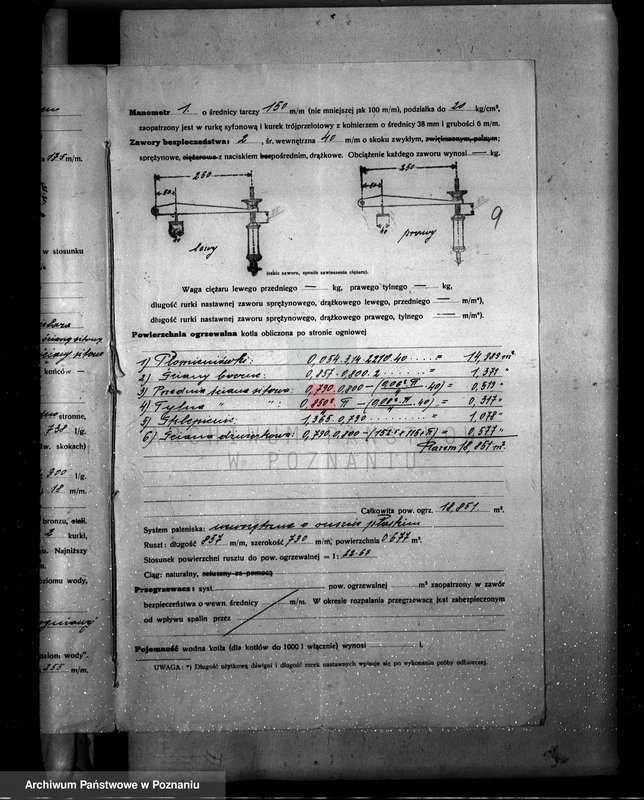 a 875 m/m.
w stosunku
końców —
stronne,
738 l/g.
(w. skokach)
900 l/g.
18 m/m.
bronzu, stali.
2 kurki,
Najniższy
oziomu wody,
oziom wody".
355 m/m.
Manometr 1. o średnicy tarczy 150 m/m (nie mniejszej jak 100 m/m), podziałka do 20 kg/cm²,
zaopatrzony jest w rurkę syfonową i kurek trójprzelotowy z kołnierzem o średnicy 38 mm i grubości 6 m/m.
Zawory bezpieczeństwa: 2, śr. wewnętrzna 40 m/m o skoku zwykłym, zwiększonym, pełnym;
sprężynowe, ciężarowe z naciskiem bezpośrednim, drążkowe. Obciążenie każdego zaworu wynosi — kg.
250
250
50
50
9
lewy
prawy
(szkic zaworu, sposób zawieszenia ciężaru).
Waga ciężaru lewego przedniego — kg, prawego tylnego — kg,
długość rurki nastawnej zaworu sprężynowego, drążkowego lewego, przedniego — m/m*),
długość rurki nastawnej zaworu sprężynowego, drążkowego prawego, tylnego — m/m*).
Powierzchnia ogrzewalna kotła obliczona po stronie ogniowej
1) Płomieniówki: 0,054.3,14.2210.40 . . . . . = 14,983 m²
2) Ściany boczne: 0,857.0,800.2 . . . . . = 1,371 "
3) Przednia ściana sitowa: 0,790.0,800 – ( . 40) = 0,513 "
4) Tylna " " : 0,850² π – ( . 40) = 0,317 "
5) Sklepienie: 1,365.0,790 . . . . . = 1,078 "
6) Ściana drzwiczkowa: 0,790.0,800 – = 0,577 "
Razem 18,851 m².
W POZNANIU
Całkowita pow. ogrz. 18,851. m².
System paleniska: wewnętrzne o ruszcie płaskim
Ruszt: długość 857 m/m, szerokość 790 m/m, powierzchnia 0,677 m².
Stosunek powierzchni rusztu do pow. ogrzewalnej = 1: 22.67
Ciąg: naturalny, sztuczny za pomocą
Przegrzewacz: syst. pow. ogrzewalnej m² zaopatrzony w zawór
bezpieczeństwa o wewn. średnicy m/m. W okresie rozpalania przegrzewacz jest zabezpieczonym
od wpływu spalin przez
Pojemność wodna kotła (dla kotłów do 1000 l włącznie) wynosi l.
UWAGA: *) Długość użytkową dźwigni i długość rurek nastawnych wpisuje się po wykonaniu próby odbiorczej.
Archiwum Państwowe w Poznaniu